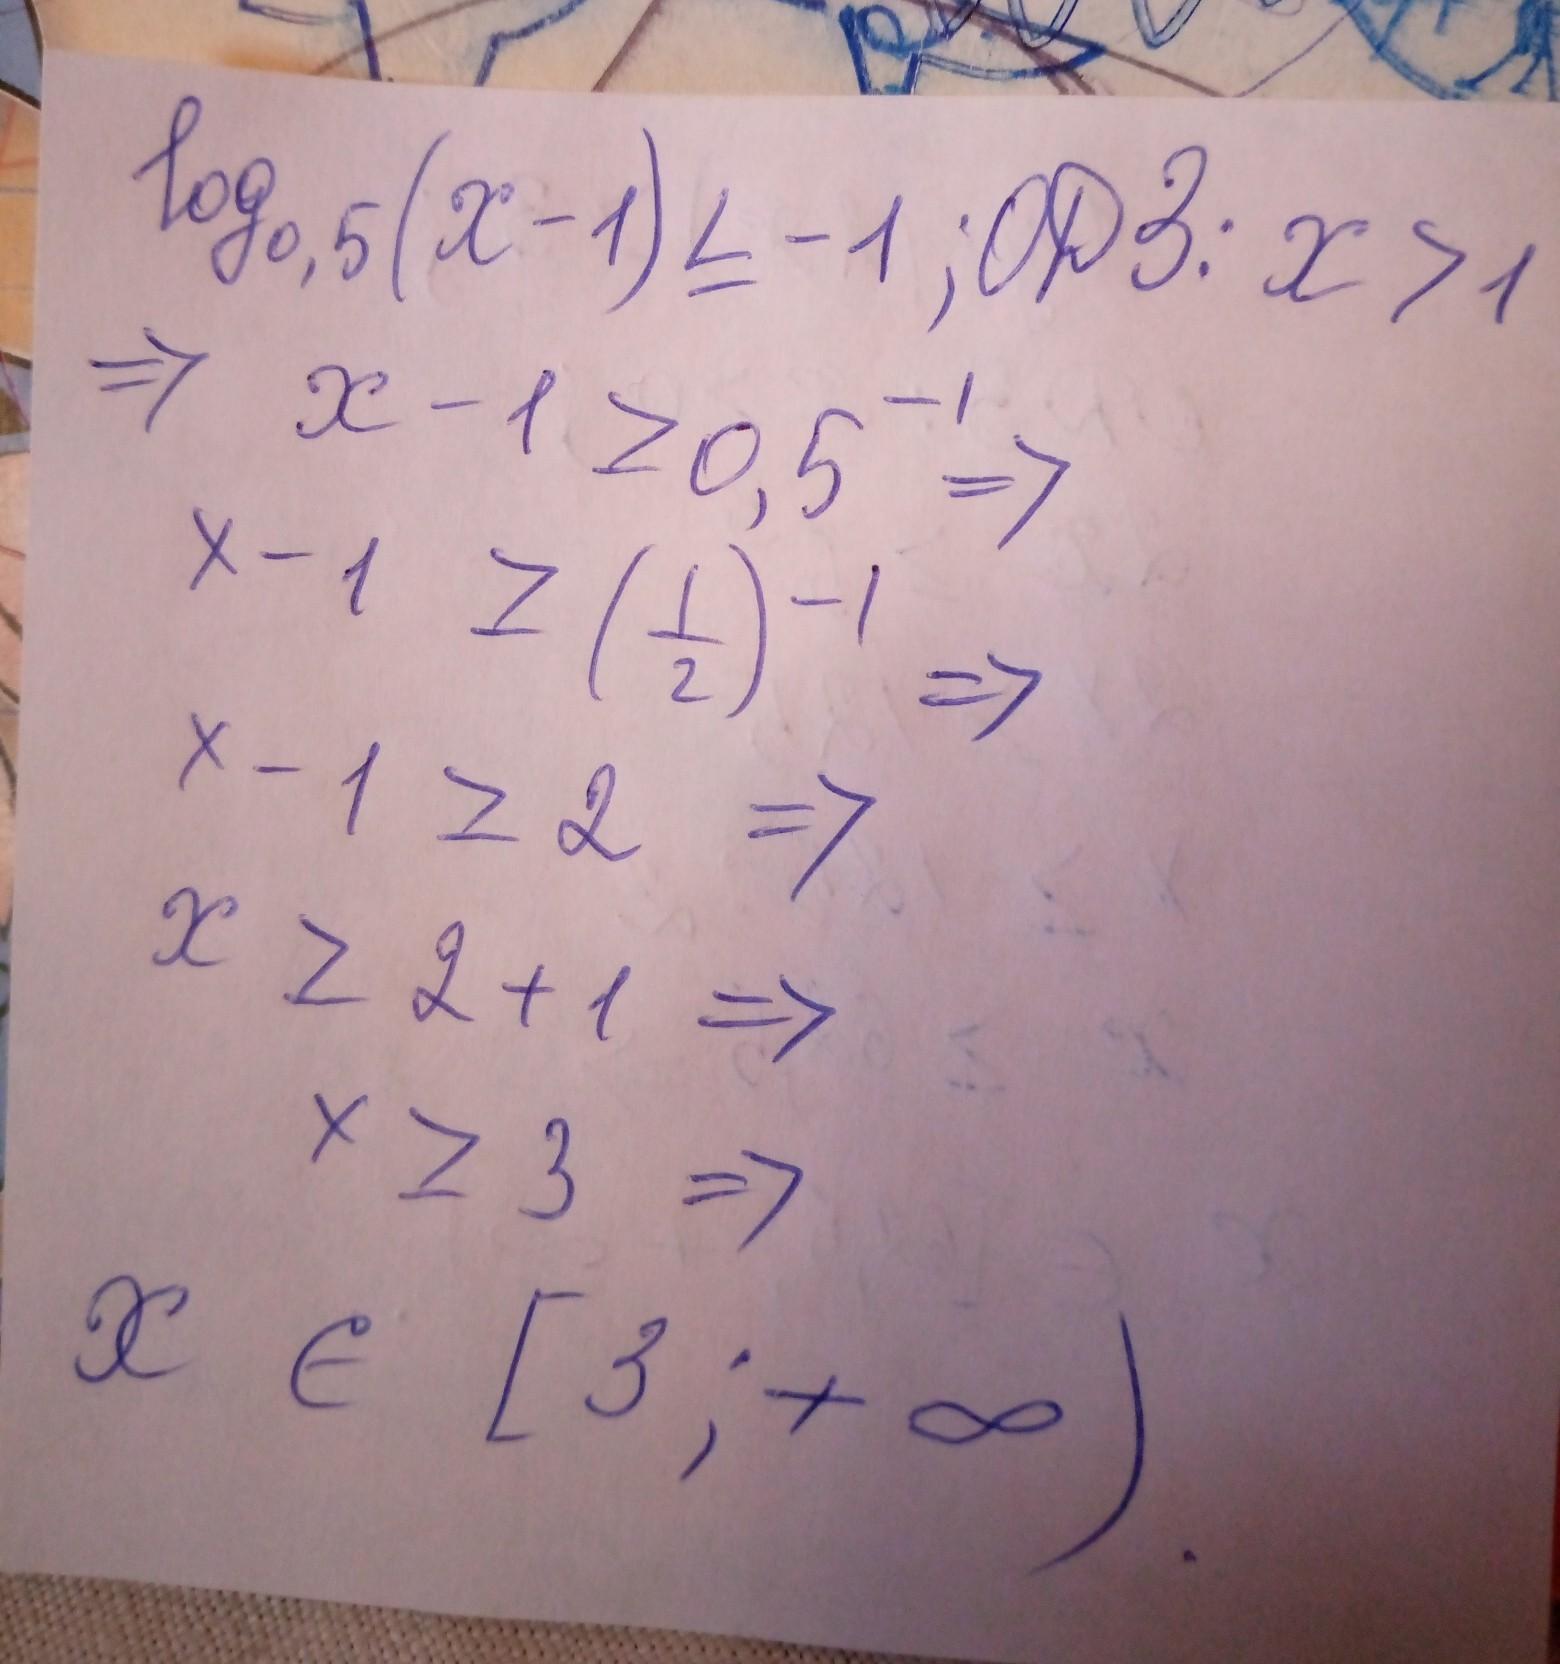 log₀,₅(x-1) ≤ -1; ОДЗ: x > 1
=> x - 1 ≥ 0,5⁻¹ =>
x - 1 ≥ (1/2)⁻¹ =>
x - 1 ≥ 2 =>
x ≥ 2 + 1 =>
x ≥ 3 =>
x ∈ [3; +∞).